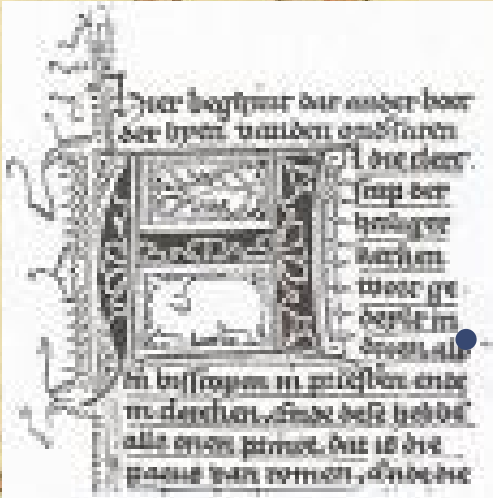 hier beghint dat ander boec
der byen vanden
Al die cleer
scap der
heiliger
kerken
wort ge
deylt in
dryen, als
in bisscopen in priesteren ende
in clercken. Ende dese hebben
alle enen prince. dat is die
paeus van romen. Ende die